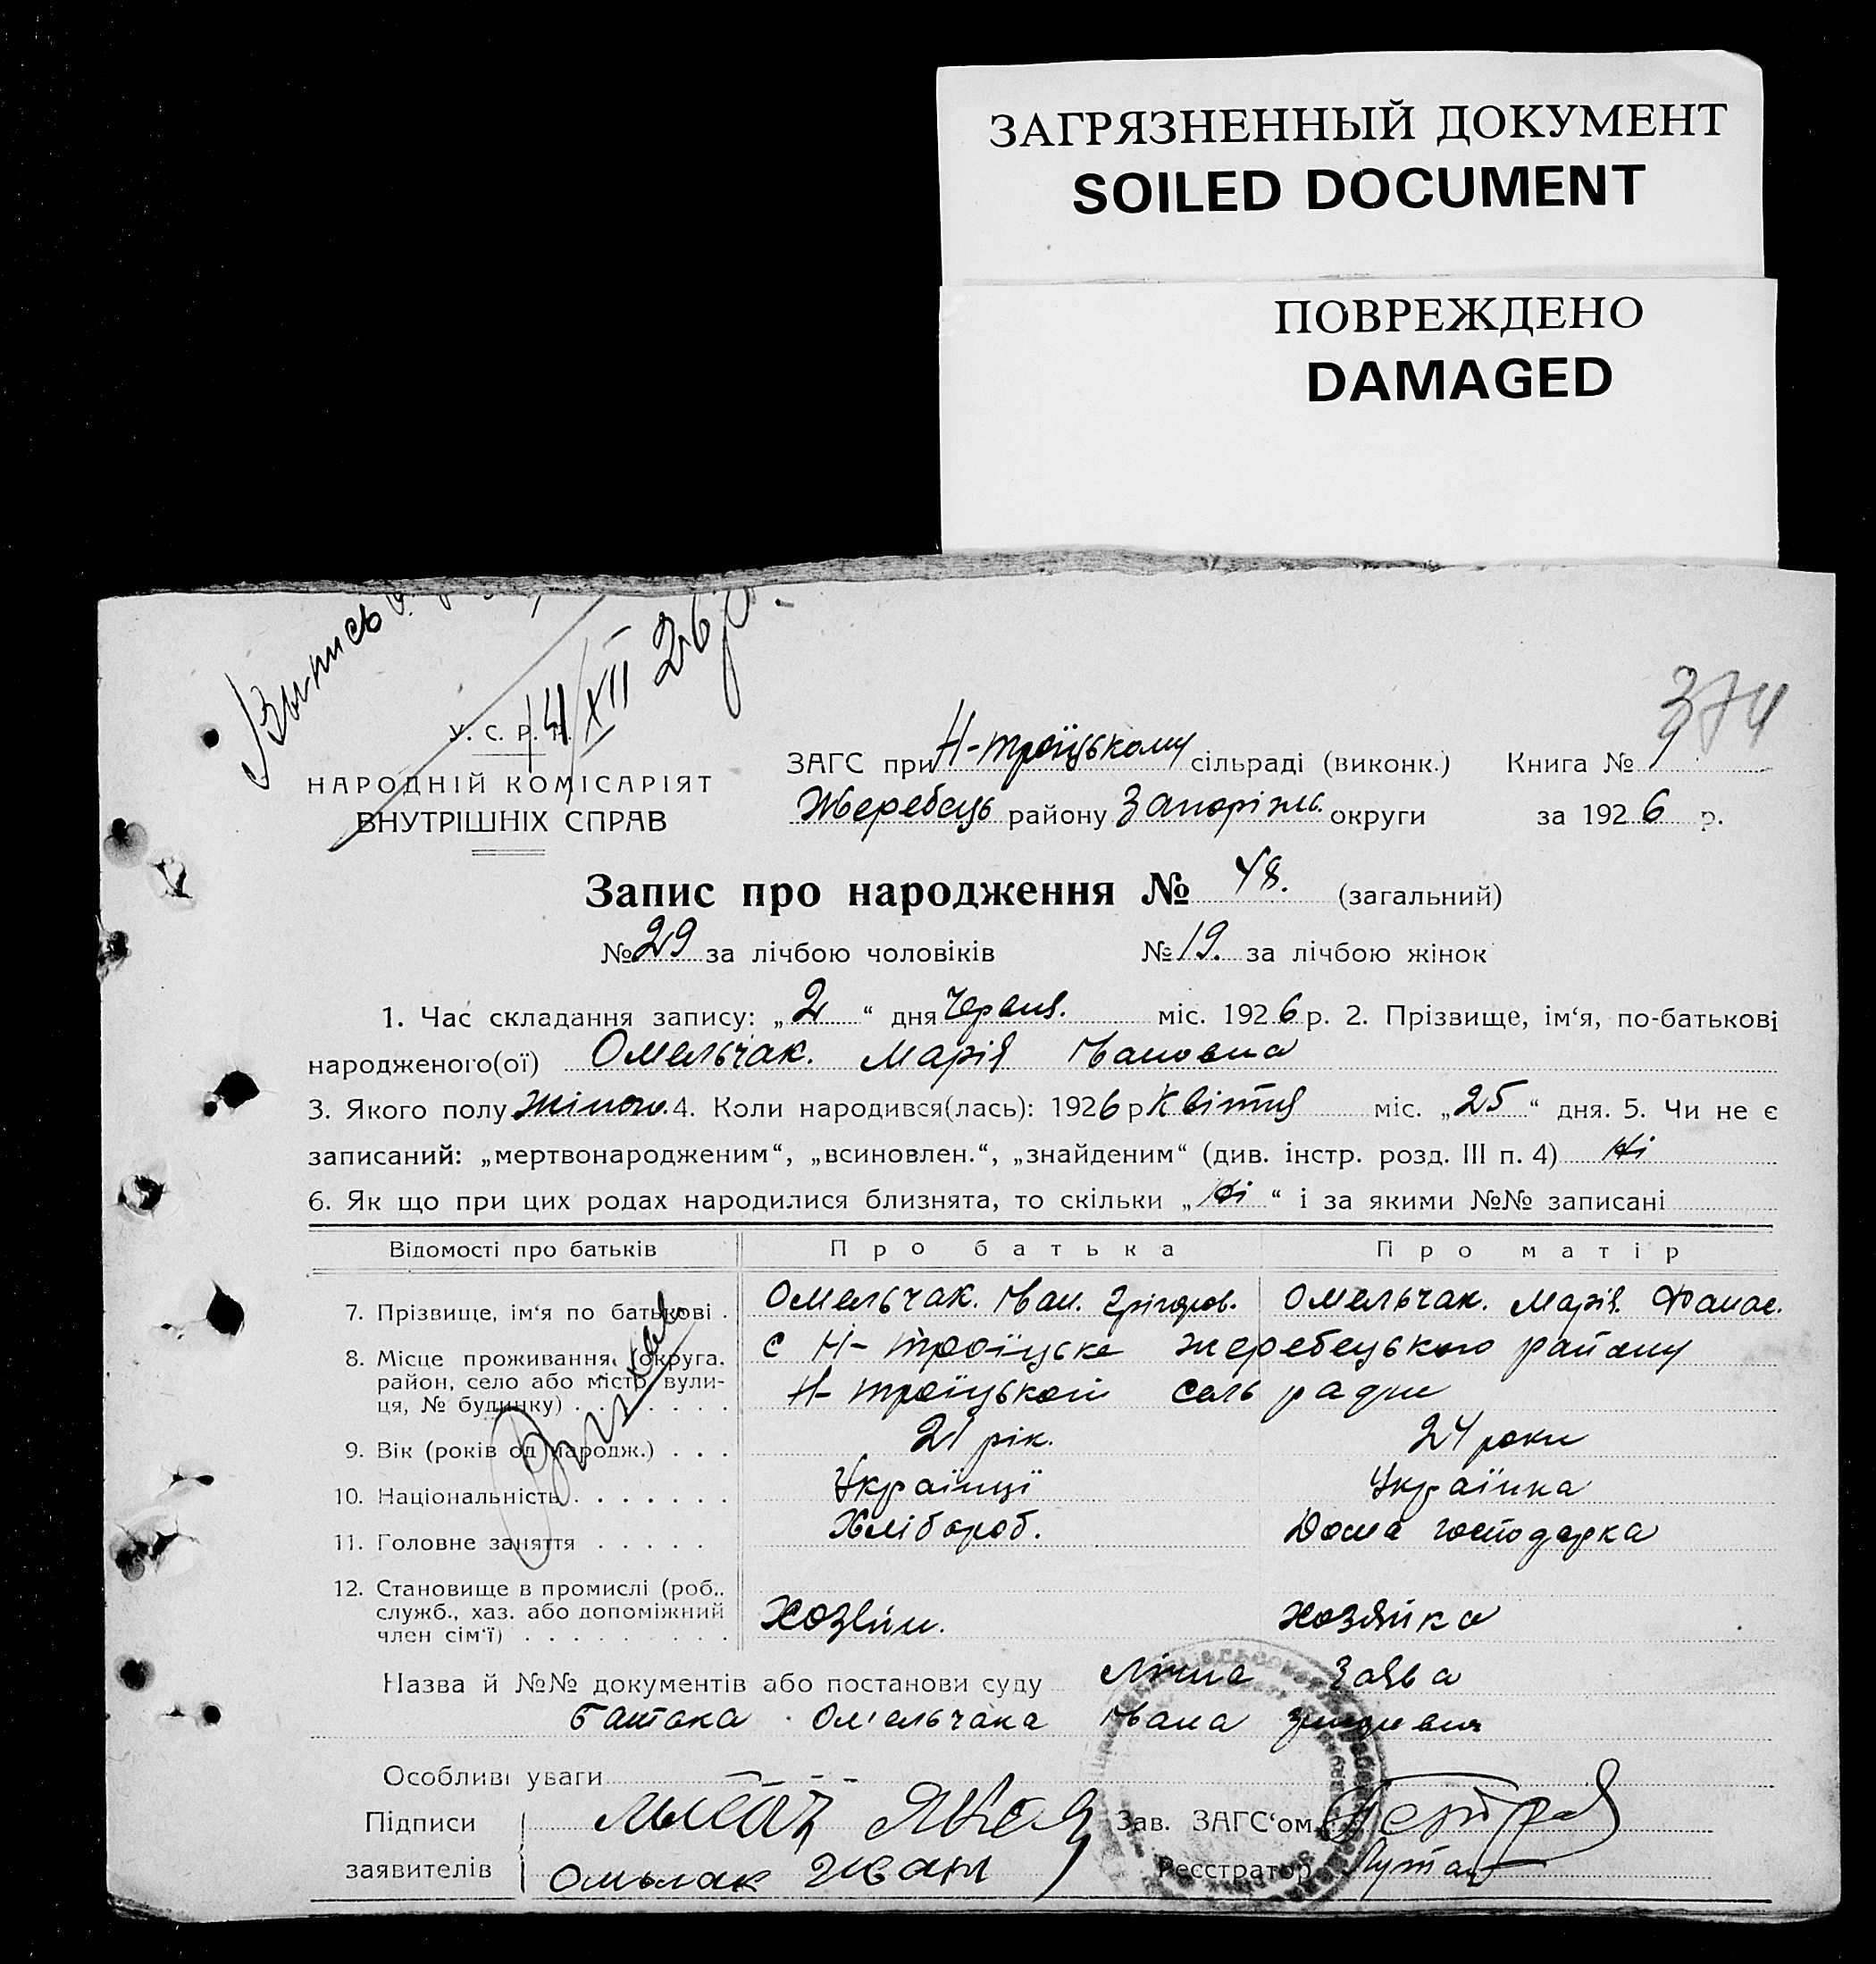 ЗАГРЯЗНЕННЫЙ ДОКУМЕНТ
SOILED DOCUMENT
ПОВРЕЖДЕНО
DAMAGED
Выпись
14/XII 26 р.
374
У. С. Р. Р.
НАРОДНІЙ КОМІСАРІЯТ
ВНУТРІШНІХ СПРАВ
ЗАГС при Н-троїцькому сільраді (виконк.) Книга №
Жеребець району Запоріжь. округи за 1926 р.
Запис про народження № 48. (загальний)
№ 29 за лічбою чоловіків № 19. за лічбою жінок
1. Час складання запису: „2“ дня Червня. міс. 1926 р. 2. Прізвище, ім‘я, по-батькові
народженого(ої) Омельчак. Марія Івановна
3. Якого полу жіночо. 4. Коли народився(лась): 1926 р Квітня міс. „25“ дня. 5. Чи не є
записаний: „мертвонародженим“, „всиновлен.“, „знайденим“ (див. інстр. розд. III п. 4) Ні
6. Як що при цих родах народилися близнята, то скільки „Ні“ і за якими №№ записані
Відомості про батьків Про батька Про матір
7. Прізвище, ім‘я по батькові . Омельчак. Іван. Грігоров. Омельчак. Марія. Фанас.
8. Місце проживання (округа. С Н-троїцьке жеребецького району
район, село або місто, вули-
ця, № будинку) . . . . . . . Н-троїцькой сель ради
9. Вік (років од народж.) . . . 21 рік. 24 роки
10. Національність . . . . . . . Українці Українка
11. Головне заняття . . . . . Хлібороб. Дома господарка
12. Становище в промислі (роб..
служб., хаз. або допоміжний Хозяїн. хозяйка
член сім‘ї) . . . . . . . . .
Назва й №№ документів або постанови суду Лична заява
Батька Омельчака Івана
Особливі уваги
Підписи Зав. ЗАГС‘ом
заявителів Омьлчак Иван Реєстратор